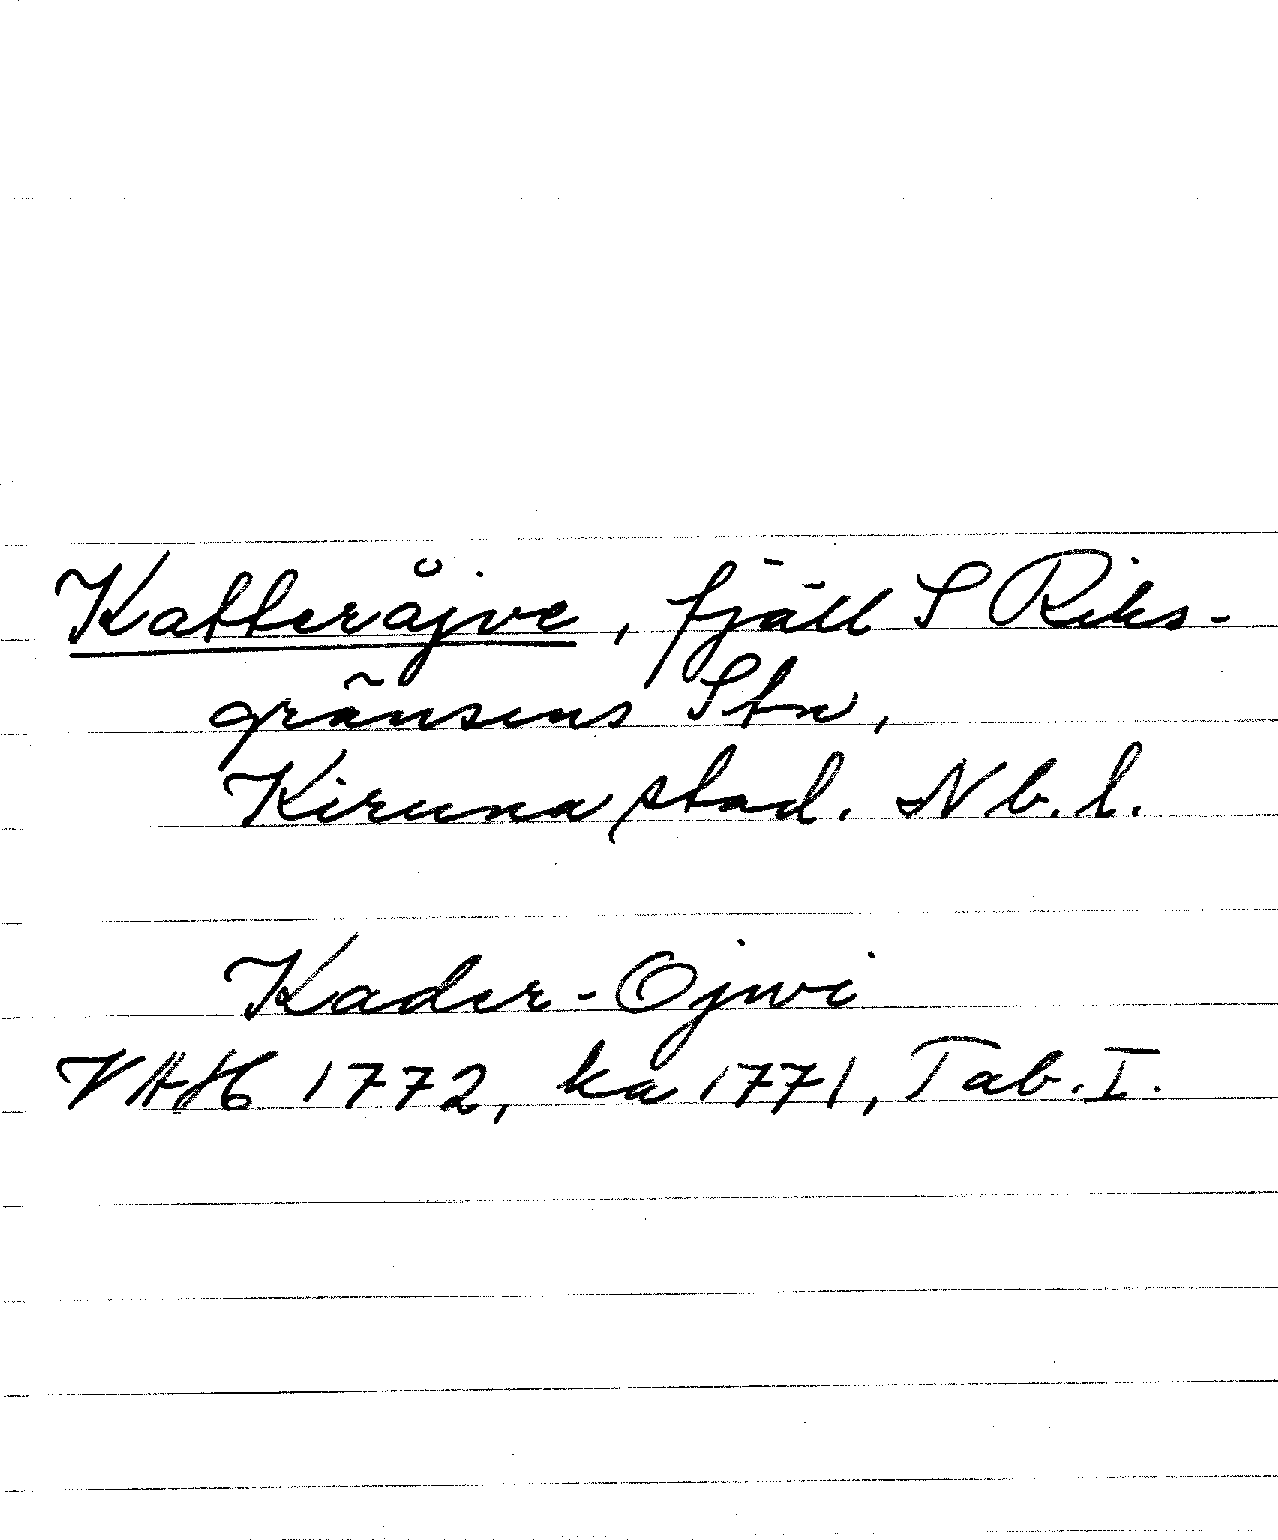 Katteråjve, fjäll S Riks-
gränsens Stn,
Kiruna stad. Nb. l.
Kader-Ojwi
VAH 1772, ka 1771, Tab. I.